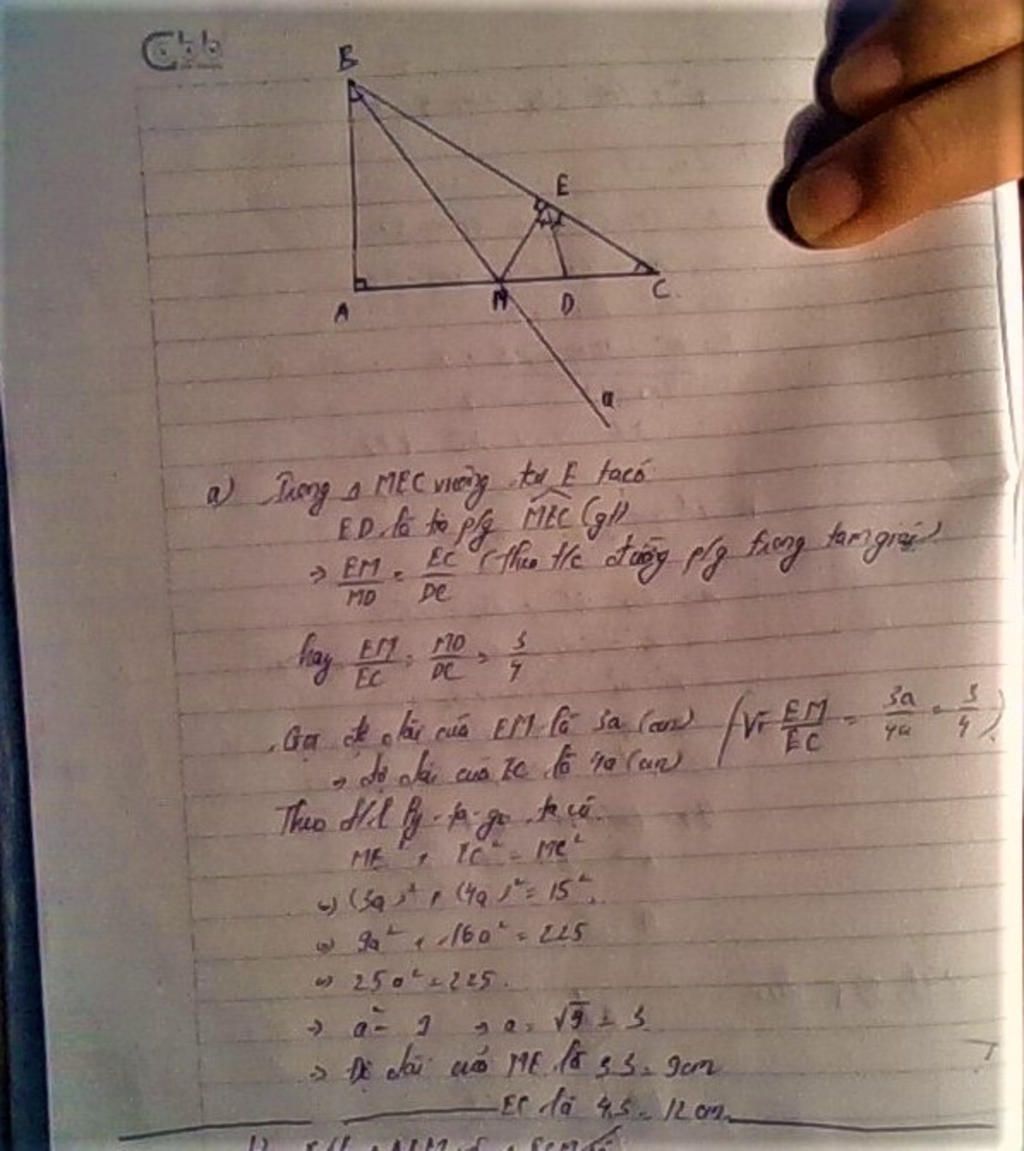 B
E
A
M
D
C
a
a) Trong Δ MEC vuông tại E ta có
ED là tia p/g MEC (gt)
=> EM/MD = EC/DC (theo t/c đường p/g trong tam giác)
hay EM/EC = MD/DC = 3/4
Gọi độ dài của EM là 3a (cm) (Vì EM/EC = 3a/4a = 3/4)
=> độ dài của EC là 4a (cm)
Theo đ/l Py-ta-go ta có
ME² + EC² = MC²
<=> (3a)² + (4a)² = 15²
<=> 9a² + 16a² = 225
<=> 25a² = 225.
=> a² = 9 => a = √9 = 3
=> Độ dài của ME là 3.3 = 9cm
EC là 4.3 = 12cm